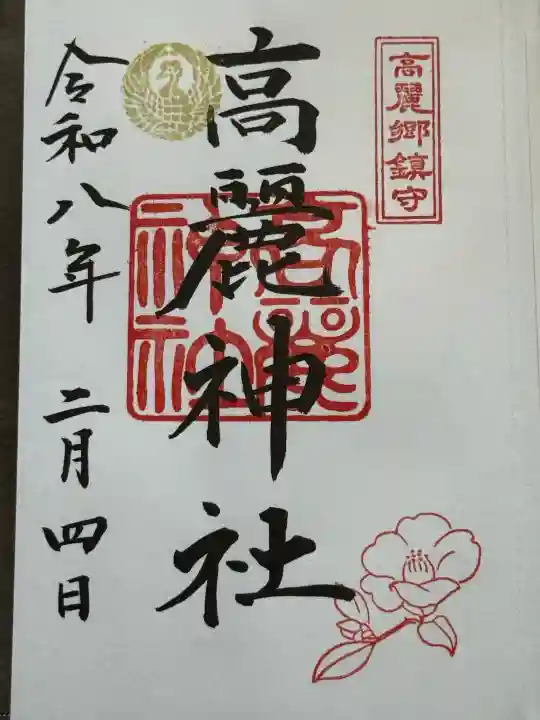 高麗郷鎮守
高麗神社
令和八年 二月四日
高麗
神社